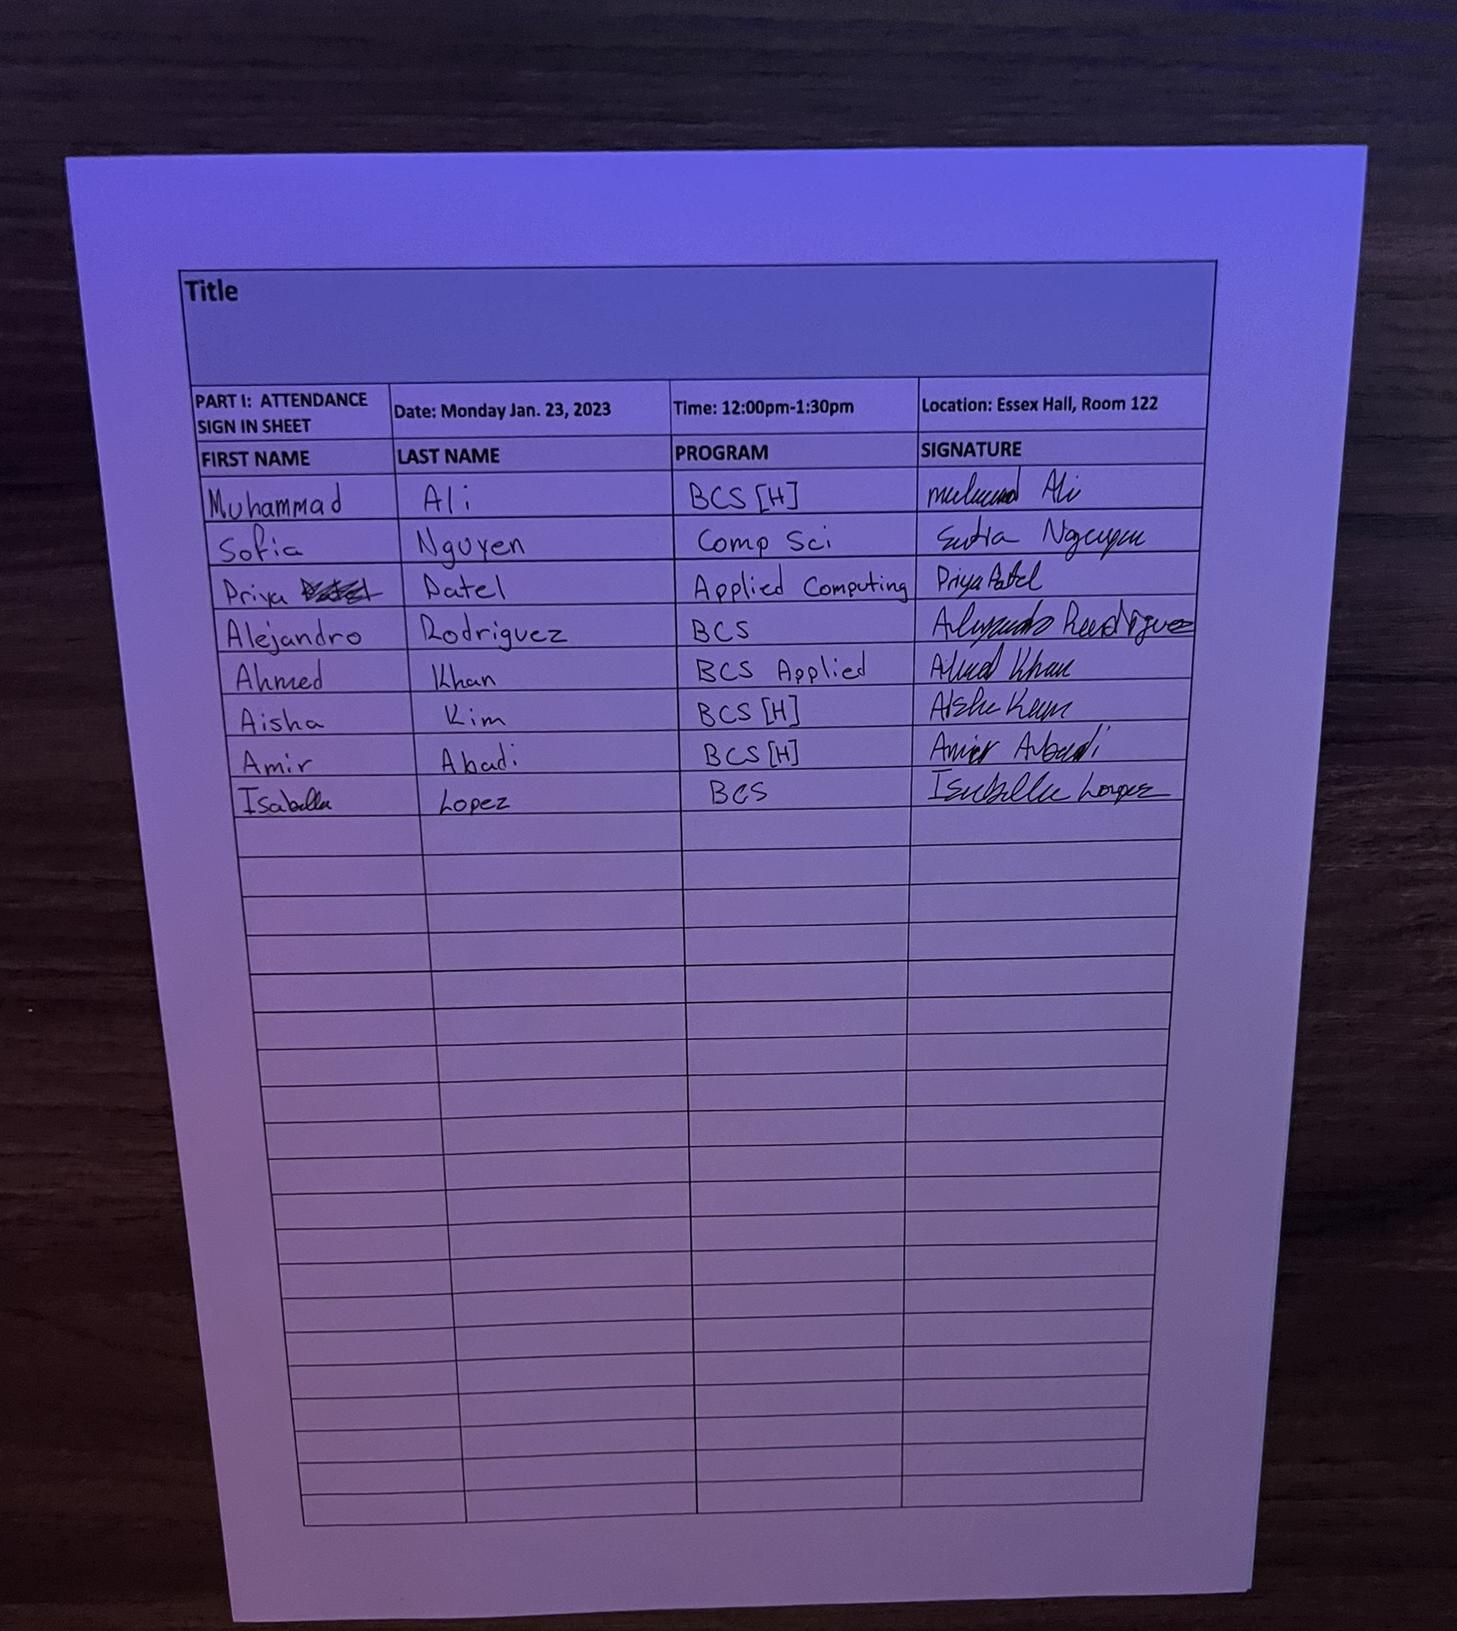 Title
PART I: ATTENDANCE SIGN IN SHEET Date: Monday Jan. 23, 2023 Time: 12:00pm-1:30pm Location: Essex Hall, Room 122
FIRST NAME LAST NAME PROGRAM SIGNATURE
Muhammad Ali BCS [H] Ali
Sofia Nguyen Comp Sci
Priya Patel Applied Computing Priya Patel
Alejandro Rodriguez BCS
Ahmed Khan BCS Applied Khan
Aisha Kim BCS [H]
Amir Abadi BCS [H] Amir Abadi
Isabella Lopez BCS Isabella Lopez